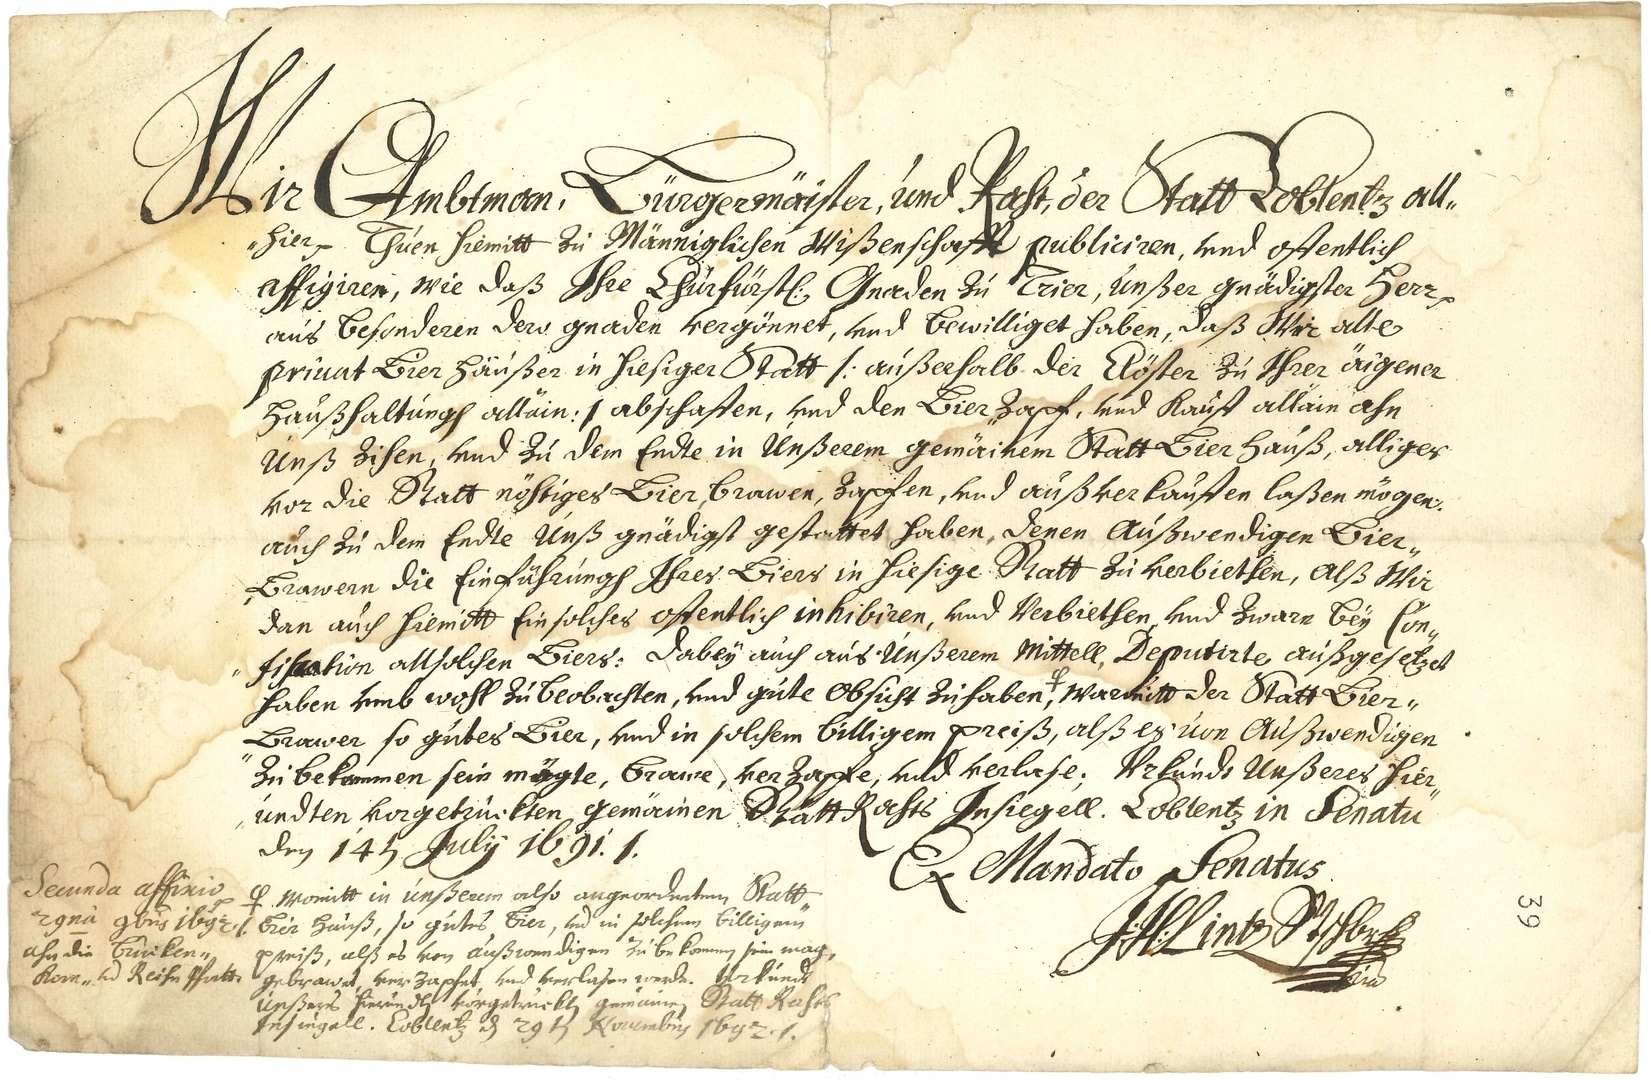 Wir Ambtman, Bürgermäister, und Raht, der Statt Coblentz all-
hier, Thuen hiemitt zu Männiglichen Wißenschafft publiciren, und offentlich
affigiren, wie daß Ihre Churfürstl: Gnaden zu Trier, unßer gnädigster Herr,
aus besonderen dero gnaden vergönnet, und bewilliget haben, daß Wir alle
privat Bier häußer in hiesiger Statt /: außerhalb der Clöster zu Ihrer äigener
haußhaltungh alläin :/ abschaffen, und den Bier Zapf, und Kauff alläin ahn
Unß Zihen, und zu dem Endte in Unßerem gemäinem Statt Bier hauß, alliges
vor die Statt nöhtiges Bier, brawen, Zapfen, und außverkauffen laßen mögen:
auch zu dem Endte Unß gnädigst gestattet haben, denen Außwendigen Bier-
Brawern die Einführungh Ihres Biers in hiesige Statt zu verbiethen, Alß Wir
dan auch hiemitt Einsolches offentlich inhibiren, und Verbiethen, und zwarn bey Con-
fiscation allsolchen Biers: Dabey auch aus Unßerem Mittell, Deputirte außgesetzet
haben umb wohl zu beobachten, und gute Obsicht zu haben, Warmitt der Statt Bier-
Brawer so gutes Bier, und in solchem billigem preiß, alß es von Außwendigen
zu bekommen sein mögte, brawe, verzapfe, und verlaße; Urkundt Unßeres hier
undten vorgetruckten gemäinen Statt Rahts Insiegell. Coblentz in Senatu
den 14ten July 1691.
Ex Mandato Senatus
Lintz Stschbr
Secunda affixio
29na 9bris 1692.
ahn die Brucken-
Korn- und Reihn Pfort
womitt in unßerem also angeordentem Statt
Bier hauß, so gutes bier, und in solchem billigem
preiß, alß es von außwendigen zu bekommen sein mag,
gebrawet, verzapfet, und verlaßen werde. Urkundt
unßers hierundten vorgetruckten gemäinen Statt Rahts
Insiegell. Coblentz den 29ten Novembris 1692.
39